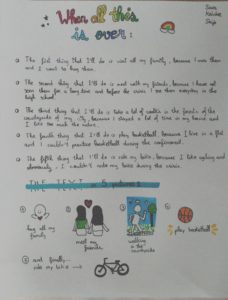 When all this
is over:
The first thing that I'll do is visit all my family, because I miss them
and I want to hug them.
The second thing that I'll do is meet with my friends, because I have not
seen them for a long time and before the crisis I saw them everyday in the
high school.
The third thing that I'll do is take a lot of walks in the
countryside of my city, because I stayed a lot of time in my house and
I like the nature.
The fourth thing that I'll do is play basketball, because I live in a flat
and I couldn't practice basketball during the confinement.
The fifth thing that I'll do is ride my bike, because I like cycling and
obviously, I couldn't ride my bike during the crisis.
THE TEXT in 5 pictures:
hug all my
family
meet my
friends
walking
in the
countryside
play basketball
and finally...
ride my bike